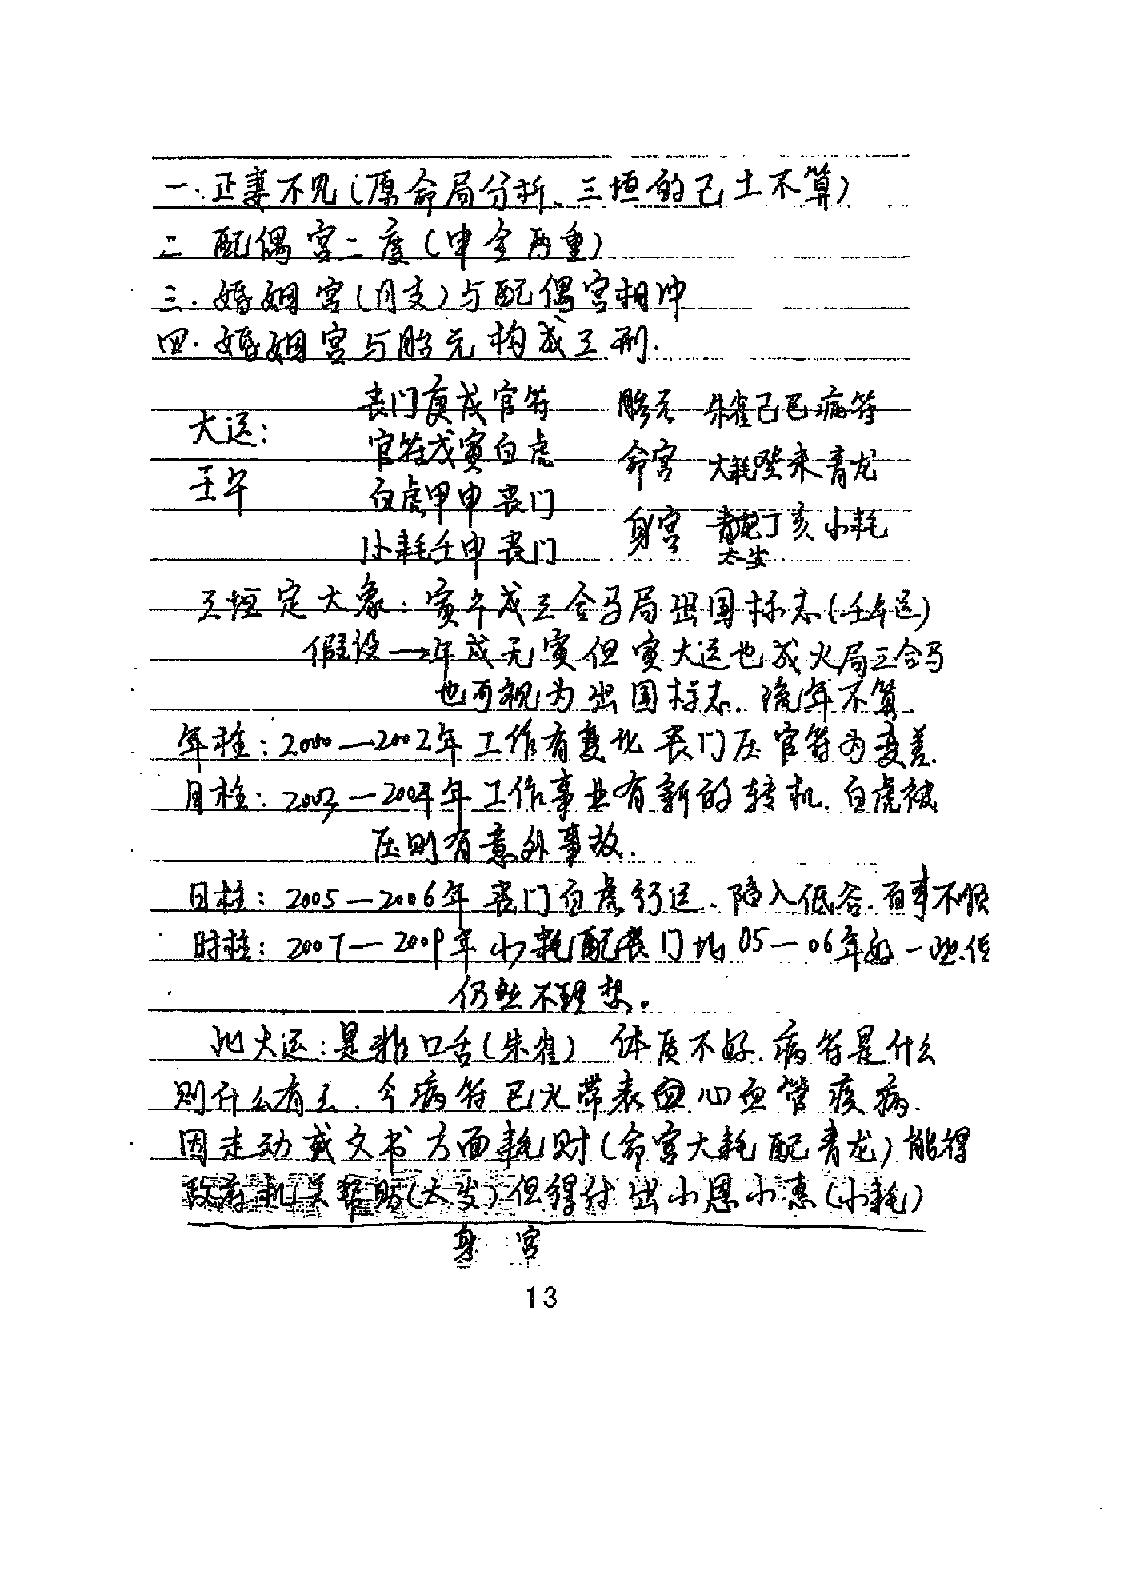 一.正妻不见(原命局分析、三垣的己土不算)
二 配偶宫二度(申金两重)
三.婚姻宫(月支)与配偶宫相冲
四.婚姻宫与胎元构成三刑.
丧门庚戌官符 胎元 朱雀己巴病符
大运: 官符戊寅白虎 命宫 大耗癸未青龙
壬午 白虎甲申丧门
小耗壬申丧门 身宫 青龙丁亥小耗
太岁
三垣定大象:寅午戌三合马局出国标志(壬午运)
假设一年戌无寅但寅大运也成火局三合马
也可视为出国标志.流年不算.
年柱:2000—2002年工作有变化 丧门压官符为变差.
月柱:2003—2004年工作事业有新的转机.白虎被
压则有意外事故.
日柱:2005—2006年丧门白虎行运.陷入低谷.百事不顺
时柱:2007—2009年小耗配丧门比05—06年好一些.但
仍然不理想.
此大运:是非口舌(朱雀) 体质不好.病符是什么
则什么有去.今病符巳火带表血心血管疾病.
因走动或文书方面耗财(命宫大耗配青龙)能得
政府机关帮助(太岁)但得付出小恩小惠(小耗)
身宫
13